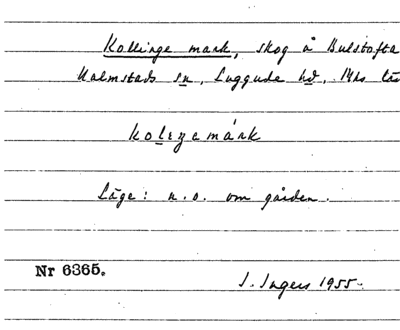 Kollinge mark, skog å Bulstofta
Halmstads sn, Luggude hd, Mhs län
kolezemark
Läge: n.o. om gården.
Nr 6365.
I. Ingers 1955.